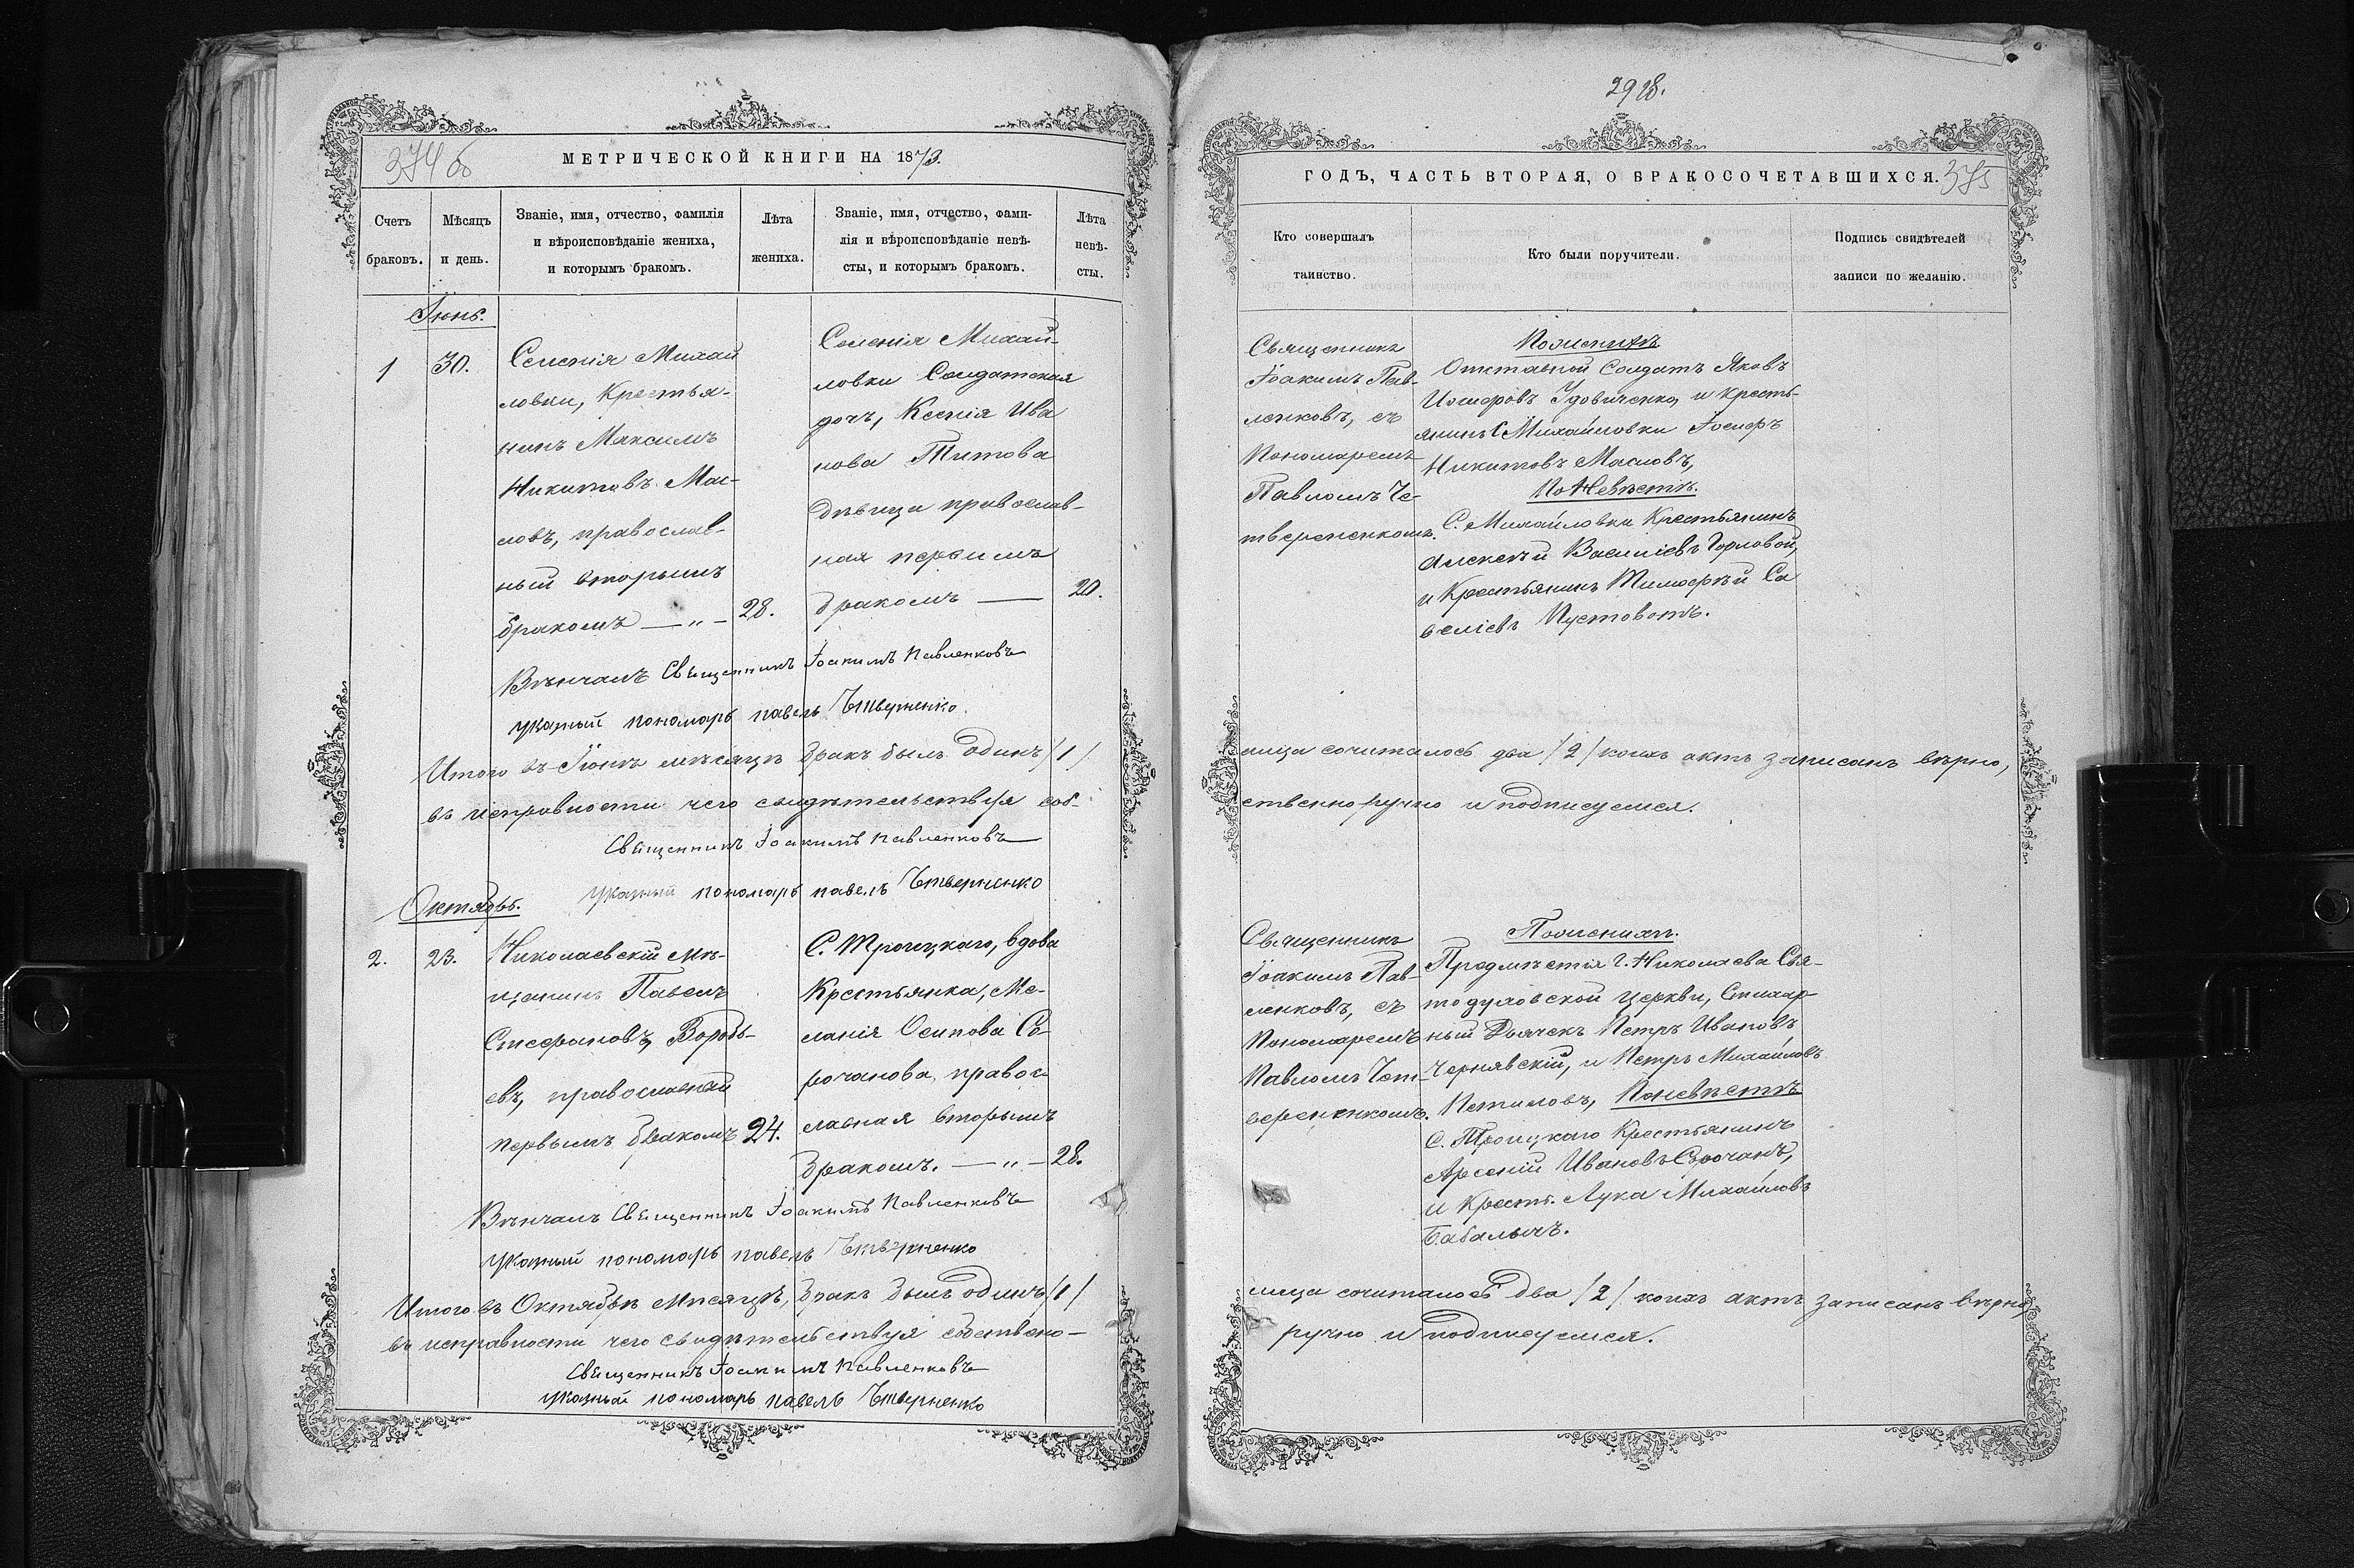 374 об
МЕТРИЧЕСКОЙ КНИГИ НА 1873.
Счетъ браковъ.
Мѣсяцъ и день.
Званіе, имя, отчество, фамилія
и вѣроисповѣданіе жениха,
и которымъ бракомъ.
Лѣта
жениха.
Званіе, имя, отчество, фами-
лія и вѣроисповѣданіе невѣ-
сты, и которымъ бракомъ.
Лѣта
невѣ-
сты.
Іюнь.
1
30.
Селенія Михай
ловки, Крестья-
нинъ Максимъ
Никитовъ Мас-
ловъ, православ-
ный вторымъ
бракомъ — „ —
28.
Селенія Михай-
ловки Солдатская
дочь, Ксенія Ива
нова Титова
дѣвица православ-
ная первымъ
бракомъ —
20.
Вѣнчалъ Священникъ Іоакимъ Павленковъ
указный пономарь павелъ Четверненко
Итого въ Іюнѣ мѣсяцѣ бракъ былъ одинъ /1/
въ исправности чего свидѣтельствуя соб-
Священникъ Іоакимъ Павленковъ
указный пономарь павелъ Четверненко
Октябрь.
2.
23.
Николаевскій мѣ-
щанинъ Павелъ
Стефановъ, Воробь-
евъ, православный
первымъ бракомъ
24.
С. Троицкаго, вдова
Крестьянка, Ме-
ланія Осипова Со-
рочанова, правос-
лавная вторымъ
бракомъ. — „ —
28.
Вѣнчалъ Священникъ Іоакимъ Павленковъ
указный пономарь павелъ Четверненко
Итого въ Октябрѣ мѣсяцѣ, бракъ былъ одинъ /1/
въ исправности чего свидѣтельствуя собствено-
Священникъ Іоакимъ Павленковъ
указный пономарь павелъ Четверненко
2928.
ГОДЪ, ЧАСТЬ ВТОРАЯ, О БРАКОСОЧЕТАВШИХСЯ.
375
Кто совершалъ
таинство.
Кто были поручители.
Подпись свидѣтелей
записи по желанію.
Священникъ
Іоакимъ Пав-
ленковъ, съ
Пономаремъ
Павломъ Че-
тверененкомъ.
По женихѣ
Отставной Солдатъ Яковъ
Іосифовъ Удовиченко, и кресть-
янинъ С Михайловки Іосифъ
Никитовъ Масловъ,
По Невѣстѣ.
С. Михайловки Крестьянинъ
Алексѣй Василіевъ Горловой,
и Крестьянинъ Тимофѣй Са
веліевъ Пустовотъ.
лица сочиталось два /2/ коихъ актъ записанъ вѣрно,
ственноручно и подписуемся.
Священникъ
Іоакимъ Пав-
ленковъ, съ
Пономаремъ
Павломъ Чет-
верененкомъ.
По женихѣ.
Предмѣстія г. Николаева Свя-
тодуховской церкви, Стихар-
ный Дьячекъ Петръ Ивановъ
Чернявскій, и Петръ Михайловъ
Петиловъ, По невѣстѣ
С. Троицкаго Крестьянинъ
Арсеній Ивановъ Сорочанъ,
и Крест. Лука Михайловъ
Бабаличъ.
лица сочиталось два /2/ коихъ актъ записанъ вѣрно,
ручно и подписуемся.